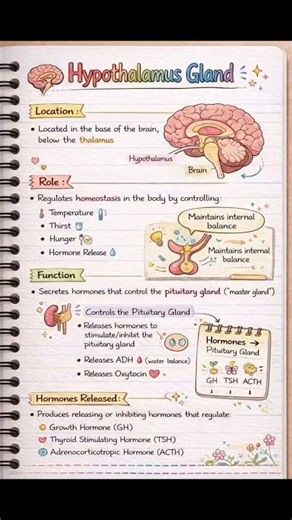 Hypothalamus Gland
Location :
• Located in the base of the brain,
below the thalamus
Hypothalamus
Brain
Role :
• Regulates homeostasis in the body by controlling:
Temperature
Thirst
Hunger
Hormone Release
Maintains internal
balance
Maintains internal
balance
Function
• Secretes hormones that control the pituitary gland ("master gland")
Controls the Pituitary Gland
• Releases hormones to
stimulate/inhibit the
pituitary gland
• Releases ADH (water balance)
• Releases Oxytocin
Hormones →
Pituitary Gland
GH TSH ACTH
Hormones Released :
• Produces releasing or inhibiting hormones that regulate:
Growth Hormone (GH)
Thyroid Stimulating Hormone (TSH)
Adrenocorticotropic Hormone (ACTH)